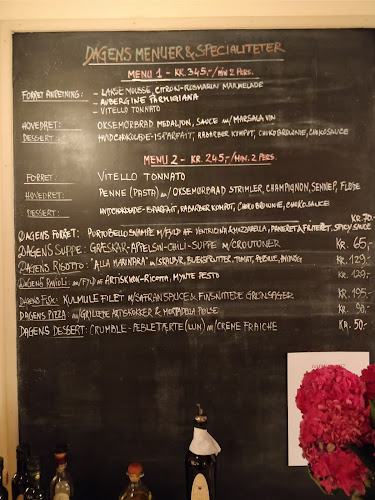 DAGENS MENUER & SPECIALITETER
MENU 1 - KR. 345,-/MIN 2 PERS.
FORRET ANRETNING: - LAKSE MOUSSE, CITRON-ROSMARIN MARMELADE
- AUBERGINE PARMIGIANA
- VITELLO TONNATO
HOVEDRET: OKSEMØRBRAD MEDALJON, SAUCE m/MARSALA VIN
DESSERT: HVIDCHOKOLADE-ISPARFAIT, RABARBER KOMPOT, CHOKO BROWNIE, CHOKOSAUCE
MENU 2 - KR. 245,-/MIN. 2 PERS.
FORRET: VITELLO TONNATO
HOVEDRET: PENNE (PASTA) m/OKSEMØRBRAD STRIMLER, CHAMPIGNON, SENNEP, FLØDE
DESSERT: HVIDCHOKOLADE-ISPARFAIT, RABARBER KOMPOT, CHOKO BROWNIE, CHOKOSAUCE
DAGENS FORRET: PORTOBELLO SVAMPE m/FYLD AF VENTRICINA & MOZZARELLA, PANERET & FRITERET, SPICY SAUCE KR. 70,-
DAGENS SUPPE: GRÆSKAR-APPELSIN-CHILI-SUPPE m/CROUTONER KR. 65,-
DAGENS RISOTTO: "ALLA MARINARA" m/SKALDYR, BLÆKSPRUTTER, TOMAT, PERSILLE, HVIDLØG KR. 129,-
DAGENS RAVIOLI: m/FYLD AF ARTISKOK-RICOTTA, MYNTE PESTO KR. 129,-
DAGENS FISK: KULMULE FILET m/SAFRAN SAUCE & FINSNITTEDE GRØNSAGER KR. 195,-
DAGENS PIZZA: m/GRILLEDE ARTISKOKKER & MORTADELLA PØLSE KR. 98,-
DAGENS DESSERT: CRUMBLE-ÆBLETÆRTE (LUN) m/CRÈME FRAICHE KR. 50,-